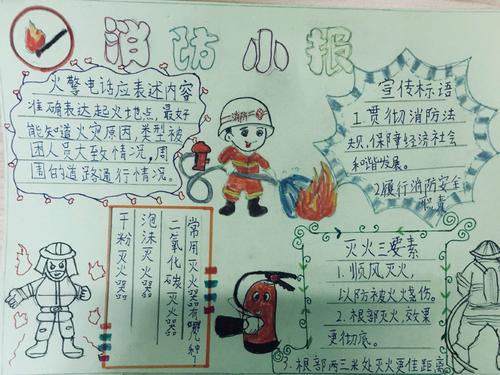 消防小报
火警电话应表述内容
准确表达起火地点,最好
能知道火灾原因,类型被
困人员大致情况,周
围的道路通行情况。
消防
宣传标语
1.贯彻消防法
规,保障经济社会
和谐发展。
2.履行消防安全
职责
常用灭火器有哪几种
二氧化碳灭火器
泡沫灭火器
干粉灭火器
灭火三要素
1.顺风灭火,
以防被火烧伤。
2.根部灭火,效果
更彻底。
3.根部两三米处灭火更佳距离